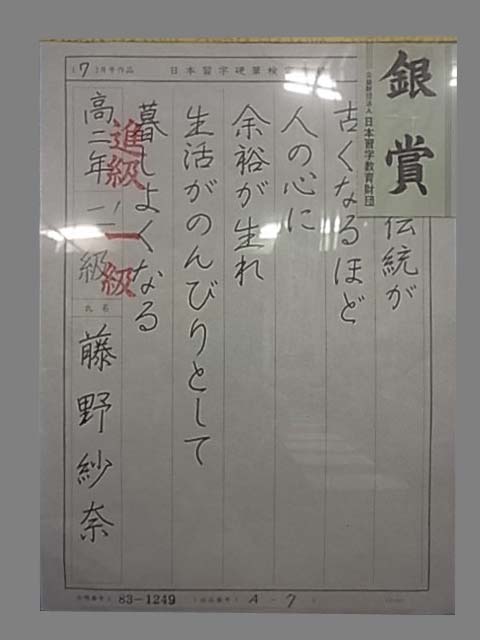 (7)月号作品 日本習字硬筆検定
銀賞
公益財団法人 日本習字教育財団
伝統が
古くなるほど
人の心に
余裕が生れ
生活がのんびりとして
暮しよくなる
進級 一級
高二年 二級
氏名
藤野紗奈
83-1249
A-7